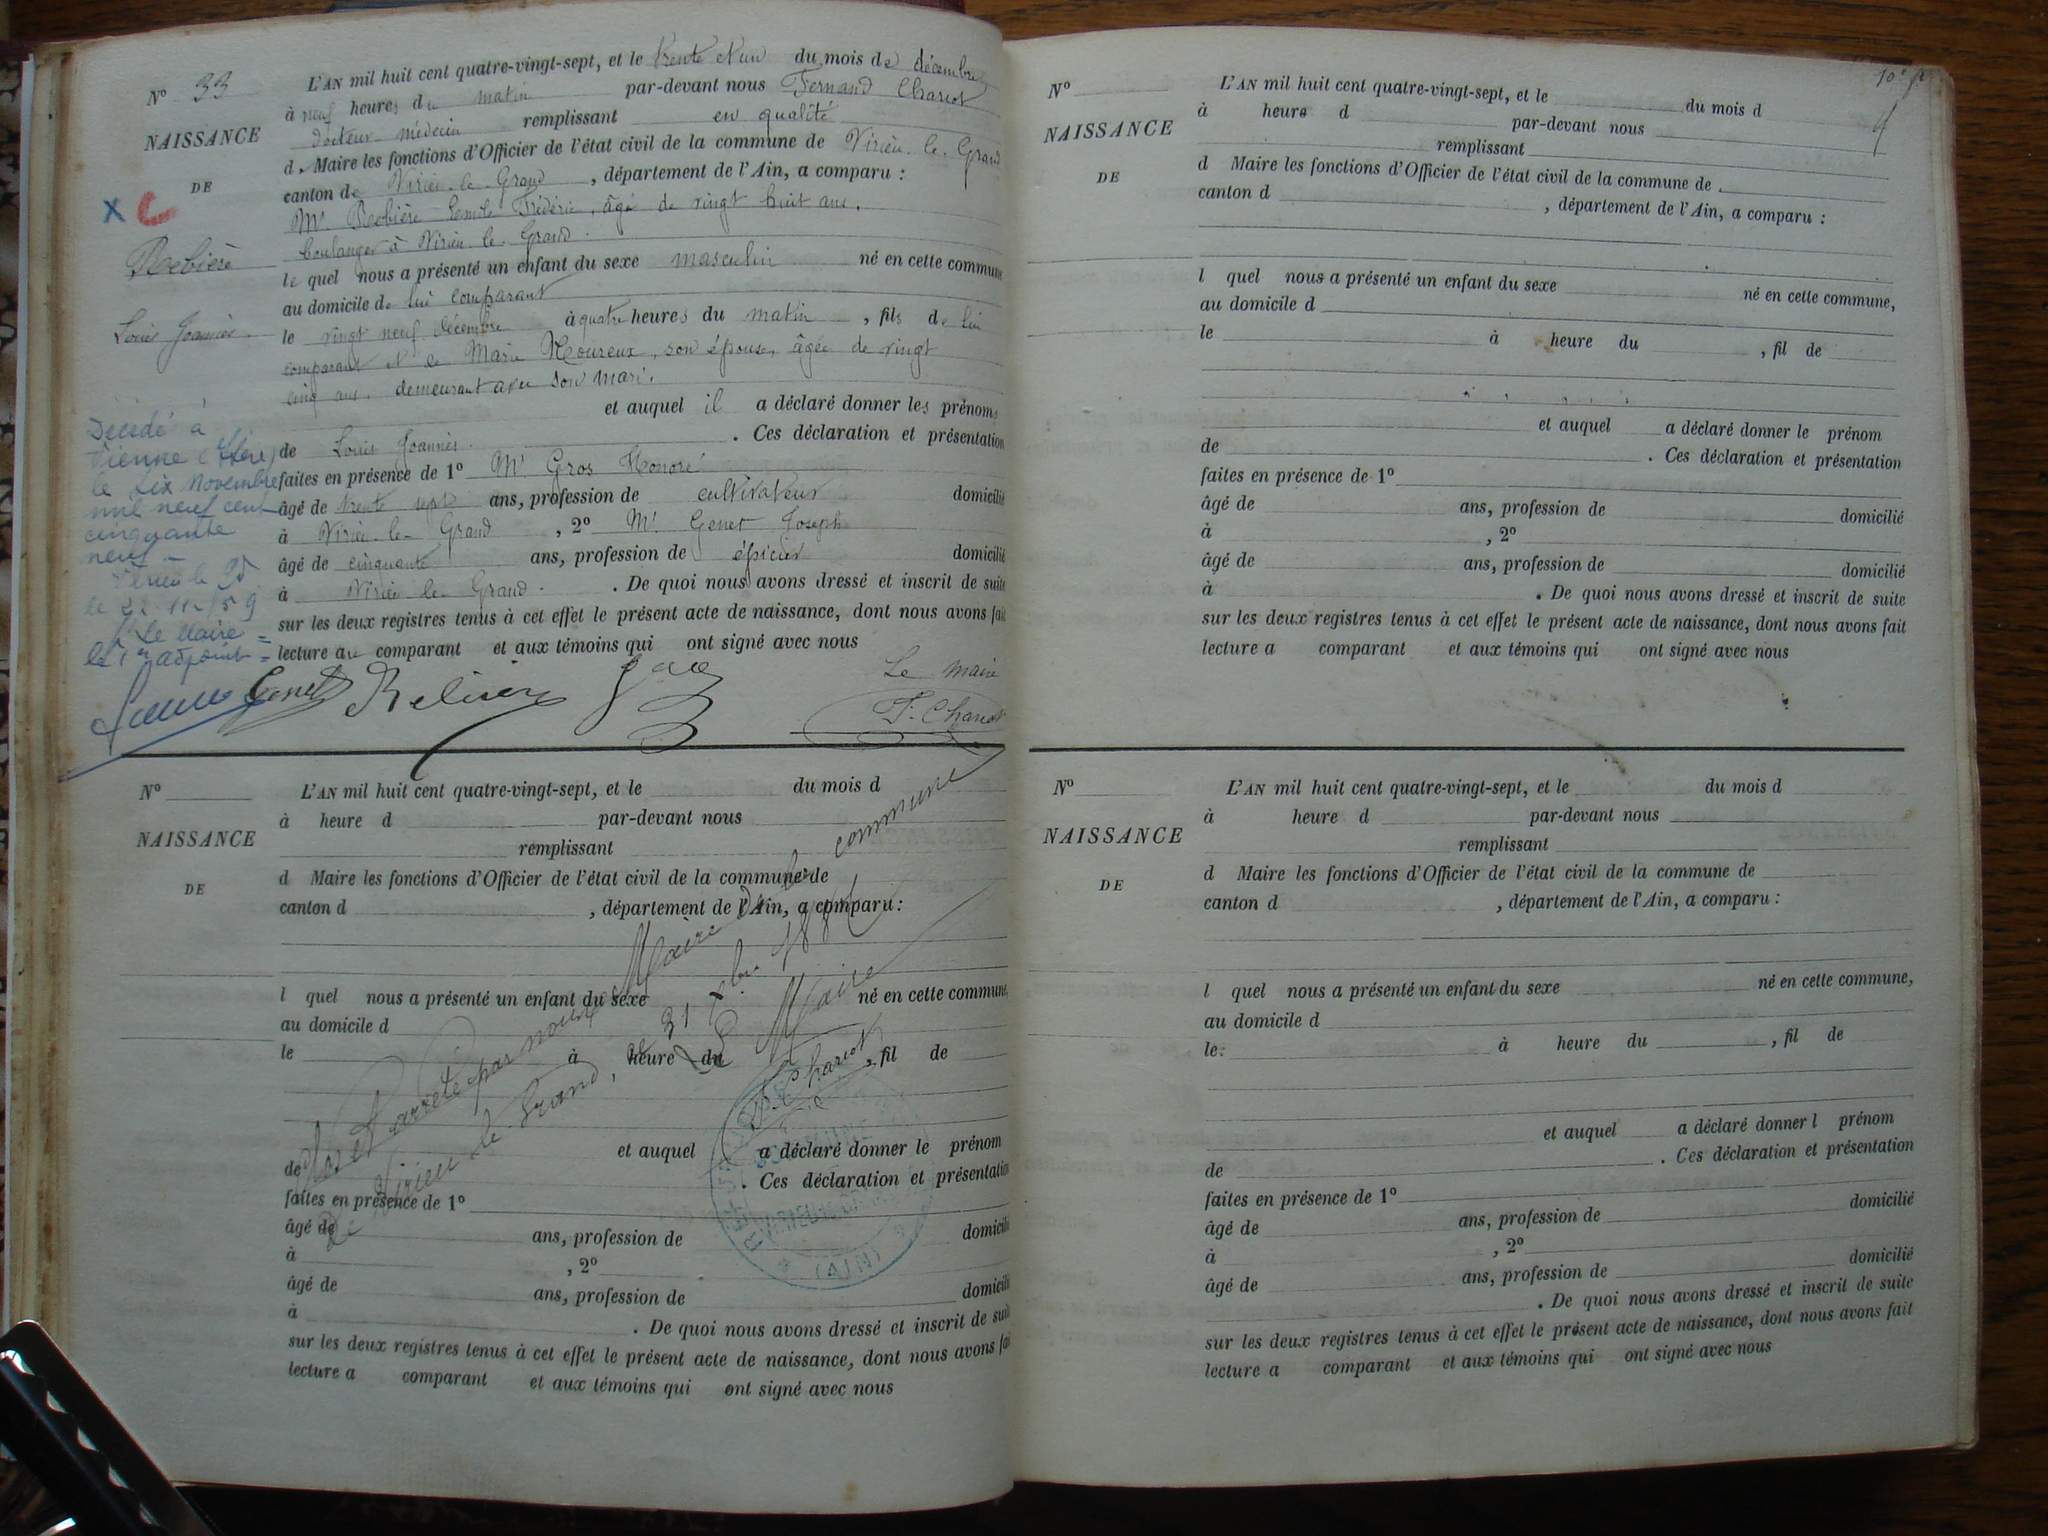 N° 33
NAISSANCE
DE
X C
Rebière
Louis Joannès
L'AN mil huit cent quatre-vingt-sept, et le trente et un du mois de décembre
à neuf heures du matin par-devant nous Fernand Chariot
docteur médecin remplissant en qualité
de Maire les fonctions d'Officier de l'état civil de la commune de Virieu-le-Grand
canton de Virieu-le-Grand, département de l'Ain, a comparu :
Mr Rebière Emile Frédéric, âgé de vingt huit ans,
boulanger à Virieu-le-Grand.
le quel nous a présenté un enfant du sexe masculin né en cette commune
au domicile de lui comparant
le vingt neuf décembre à quatre heures du matin, fils de lui
comparant et de Marie Moureux, son épouse, âgée de vingt
cinq ans, demeurant avec son mari.
et auquel il a déclaré donner les prénoms
de Louis Joannès. Ces déclaration et présentation
faites en présence de 1° Mr Gros Honoré
âgé de trente sept ans, profession de cultivateur domicilié
à Virieu-le-Grand, 2° Mr Genet Joseph
âgé de cinquante ans, profession de épicier domicilié
à Virieu-le-Grand. De quoi nous avons dressé et inscrit de suite
sur les deux registres tenus à cet effet le présent acte de naissance, dont nous avons fait
lecture au comparant et aux témoins qui ont signé avec nous
Décédé à
Vienne (Isère)
le dix novembre
mil neuf cent
cinquante
neuf -
Virieu le Gd
le 22-11-59
Le Maire =
le 1er adjoint =
Genet Rebière Gros
Le maire
F. Chariot
N°
NAISSANCE
DE
L'AN mil huit cent quatre-vingt-sept, et le du mois d
à heure d par-devant nous
remplissant
d Maire les fonctions d'Officier de l'état civil de la commune de
canton d , département de l'Ain, a comparu :
l quel nous a présenté un enfant du sexe né en cette commune,
au domicile d
le à heure du , fil de
et auquel a déclaré donner le prénom
de . Ces déclaration et présentation
faites en présence de 1°
âgé de ans, profession de domicilié
à , 2°
âgé de ans, profession de domicilié
à . De quoi nous avons dressé et inscrit de suite
sur les deux registres tenus à cet effet le présent acte de naissance, dont nous avons fait
lecture a comparant et aux témoins qui ont signé avec nous
Clos et arrêté par nous Maire de la commune
de Virieu le Grand, le 31 Xbre 1887
Le Maire
F. Chariot
(AIN)
N°
NAISSANCE
DE
L'AN mil huit cent quatre-vingt-sept, et le du mois d
à heure d par-devant nous
remplissant
d Maire les fonctions d'Officier de l'état civil de la commune de
canton d , département de l'Ain, a comparu :
l quel nous a présenté un enfant du sexe né en cette commune,
au domicile d
le à heure du , fil de
et auquel a déclaré donner le prénom
de . Ces déclaration et présentation
faites en présence de 1°
âgé de ans, profession de domicilié
à , 2°
âgé de ans, profession de domicilié
à . De quoi nous avons dressé et inscrit de suite
sur les deux registres tenus à cet effet le présent acte de naissance, dont nous avons fait
lecture a comparant et aux témoins qui ont signé avec nous
N°
NAISSANCE
DE
L'AN mil huit cent quatre-vingt-sept, et le du mois d
à heure d par-devant nous
remplissant
d Maire les fonctions d'Officier de l'état civil de la commune de
canton d , département de l'Ain, a comparu :
l quel nous a présenté un enfant du sexe né en cette commune,
au domicile d
le à heure du , fil de
et auquel a déclaré donner l prénom
de . Ces déclaration et présentation
faites en présence de 1°
âgé de ans, profession de domicilié
à , 2°
âgé de ans, profession de domicilié
. De quoi nous avons dressé et inscrit de suite
sur les deux registres tenus à cet effet le présent acte de naissance, dont nous avons fait
lecture a comparant et aux témoins qui ont signé avec nous